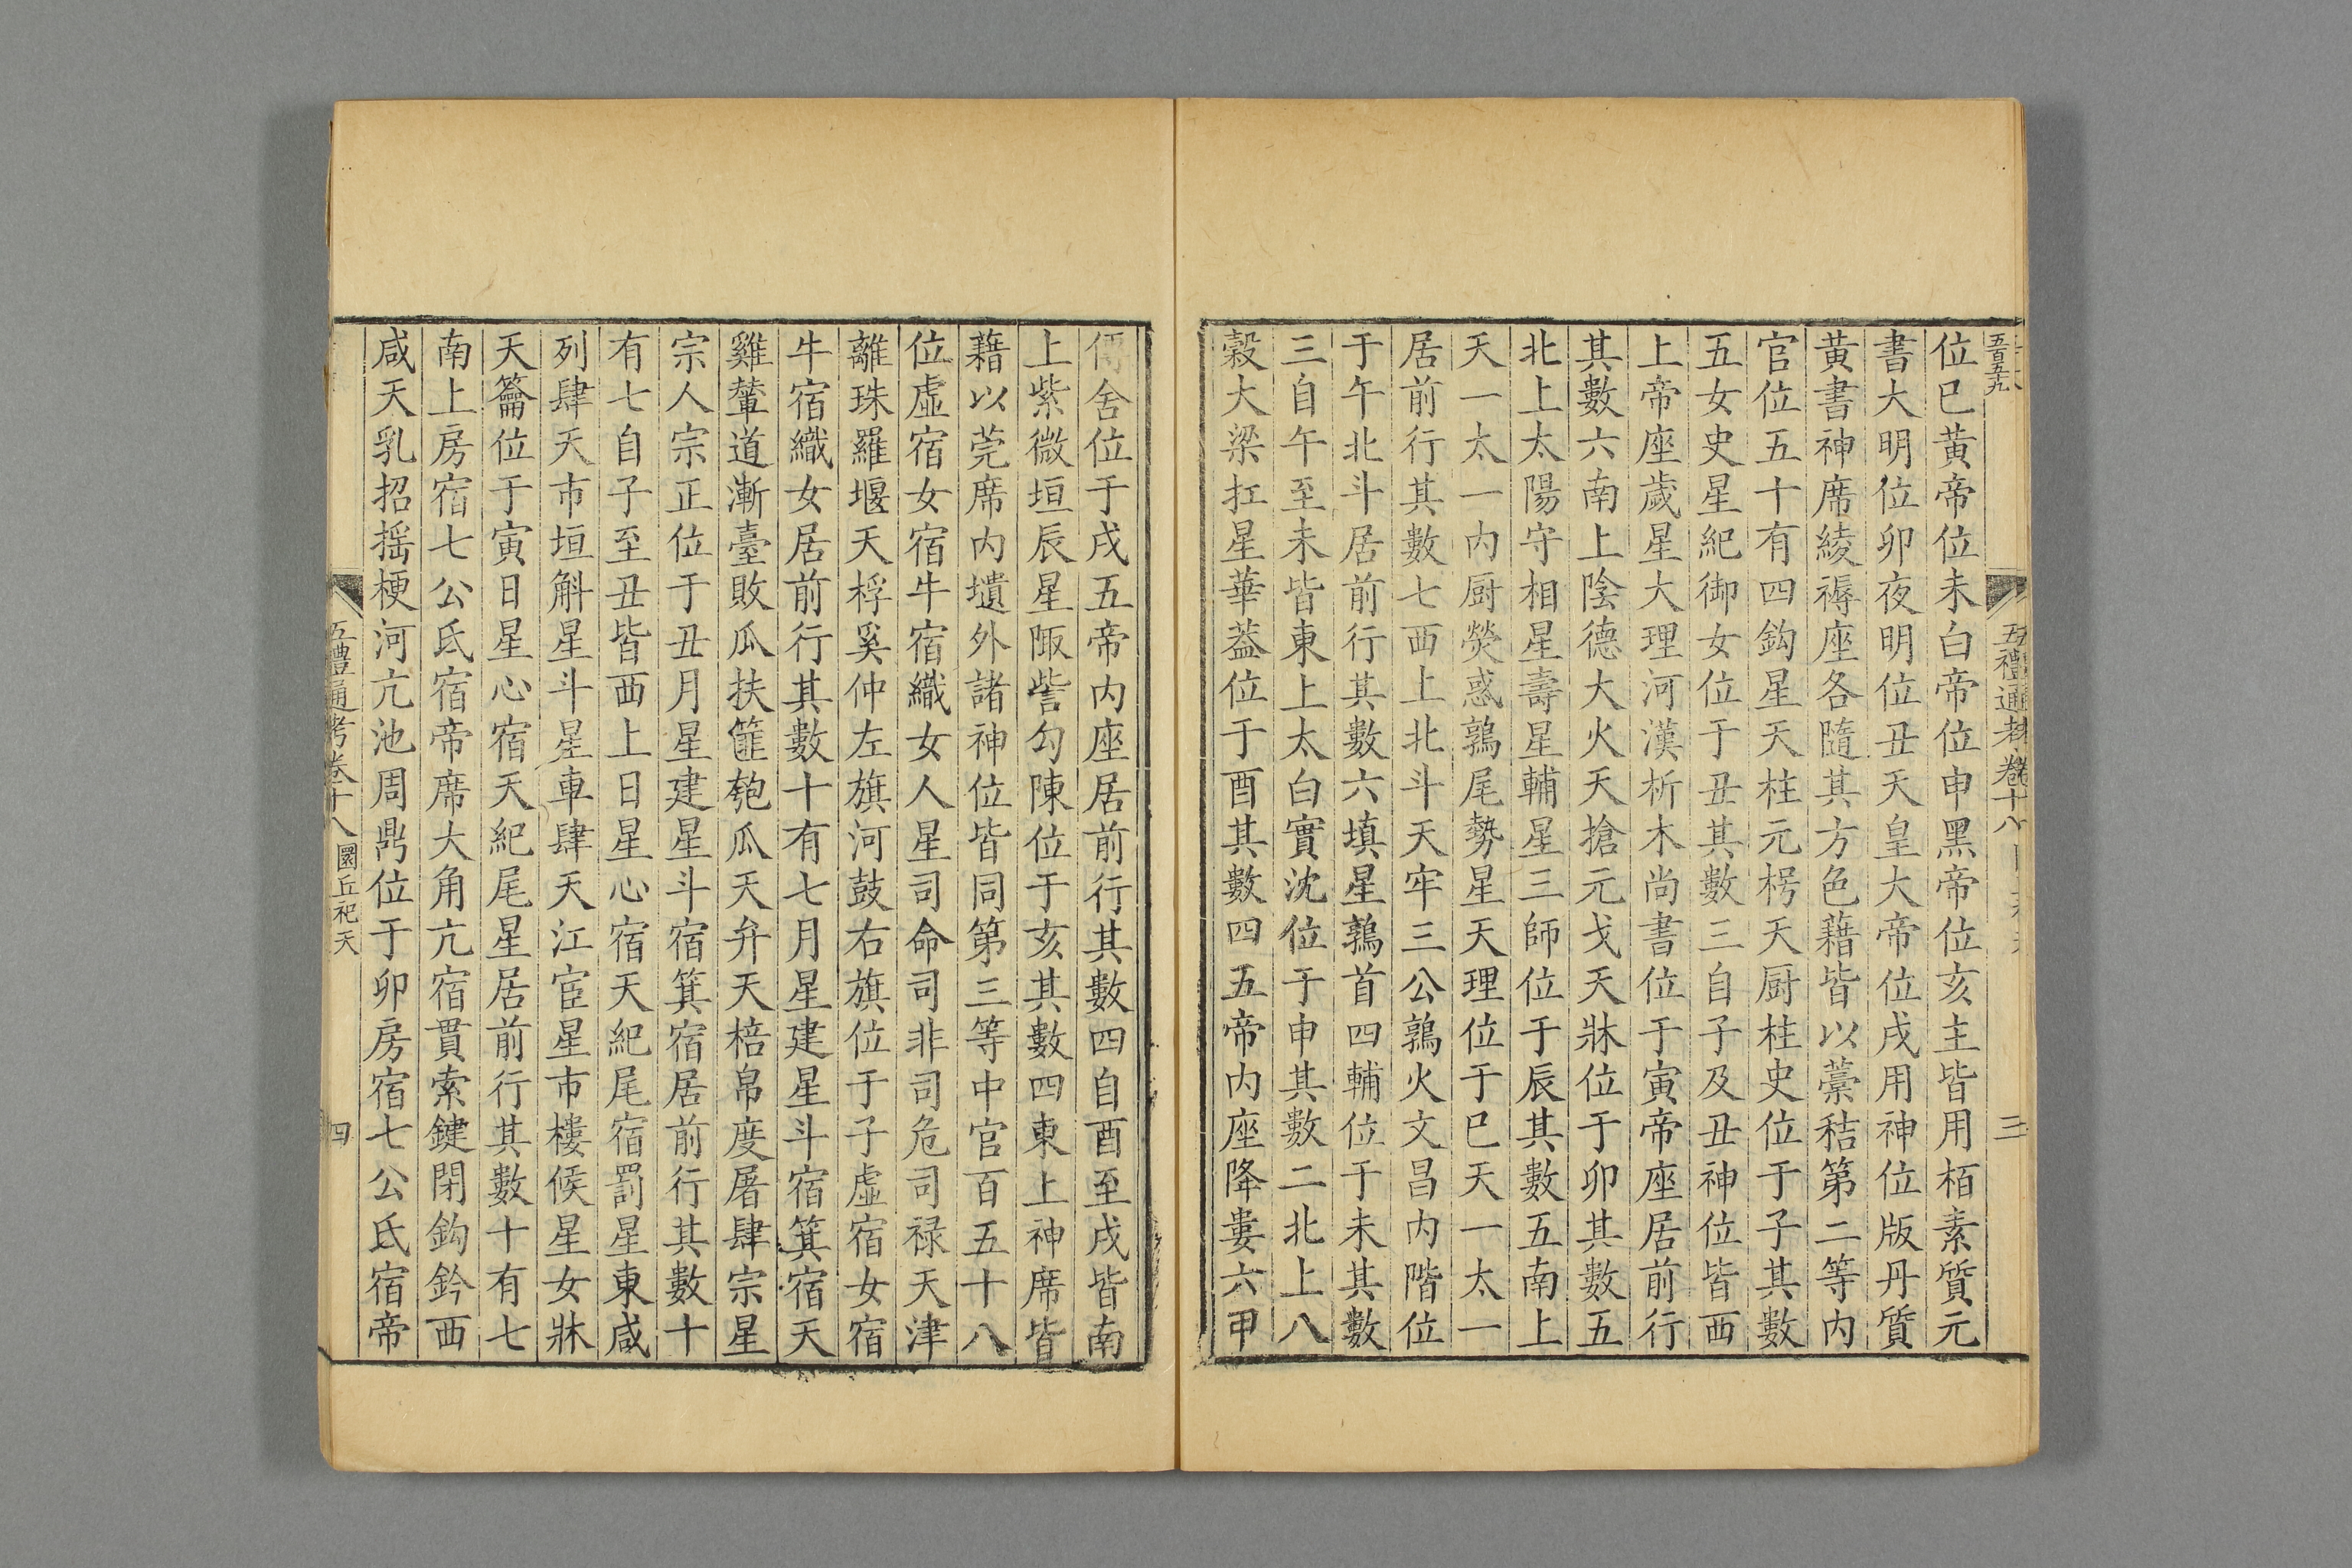 五百五九
五禮通考卷十八
三
位巳黃帝位未白帝位申黑帝位亥主皆用栢素質元
書大明位卯夜明位丑天皇大帝位戌用神位版丹質
黃書神席綾褥座各隨其方色藉皆以藁秸第二等内
官位五十有四鈎星天柱元枵天厨柱史位于子其數
五女史星紀御女位于丑其數三自子及丑神位皆西
上帝座歲星大理河漢析木尚書位于寅帝座居前行
其數六南上陰德大火天搶元戈天牀位于卯其數五
北上太陽守相星壽星輔星三師位于辰其數五南上
天一太一内厨熒惑鶉尾勢星天理位于巳天一太一
居前行其數七西上北斗天牢三公鶉火文昌内階位
于午北斗居前行其數六填星鶉首四輔位于未其數
三自午至未皆東上太白實沈位于申其數二北上八
榖大梁扛星華葢位于酉其數四五帝内座降婁六甲
傅舍位于戌五帝内座居前行其數四自酉至戌皆南
上紫微垣辰星陬訾勾陳位于亥其數四東上神席皆
藉以莞席内壝外諸神位皆同第三等中官百五十八
位虛宿女宿牛宿織女人星司命司非司危司禄天津
離珠羅堰天桴奚仲左旗河鼓右旗位于子虛宿女宿
牛宿織女居前行其數十有七月星建星斗宿箕宿天
雞輦道漸臺敗瓜扶筐匏瓜天弁天棓帛度屠肆宗星
宗人宗正位于丑月星建星斗宿箕宿居前行其數十
有七自子至丑皆西上日星心宿天紀尾宿罰星東咸
列肆天市垣斛星斗星車肆天江宦星市樓候星女牀
天籥位于寅日星心宿天紀尾星居前行其數十有七
南上房宿七公氐宿帝席大角亢宿貫索鍵閉鈎鈐西
咸天乳招摇梗河亢池周鼎位于卯房宿七公氐宿帝
五禮通考卷十八 圜丘祀天
四